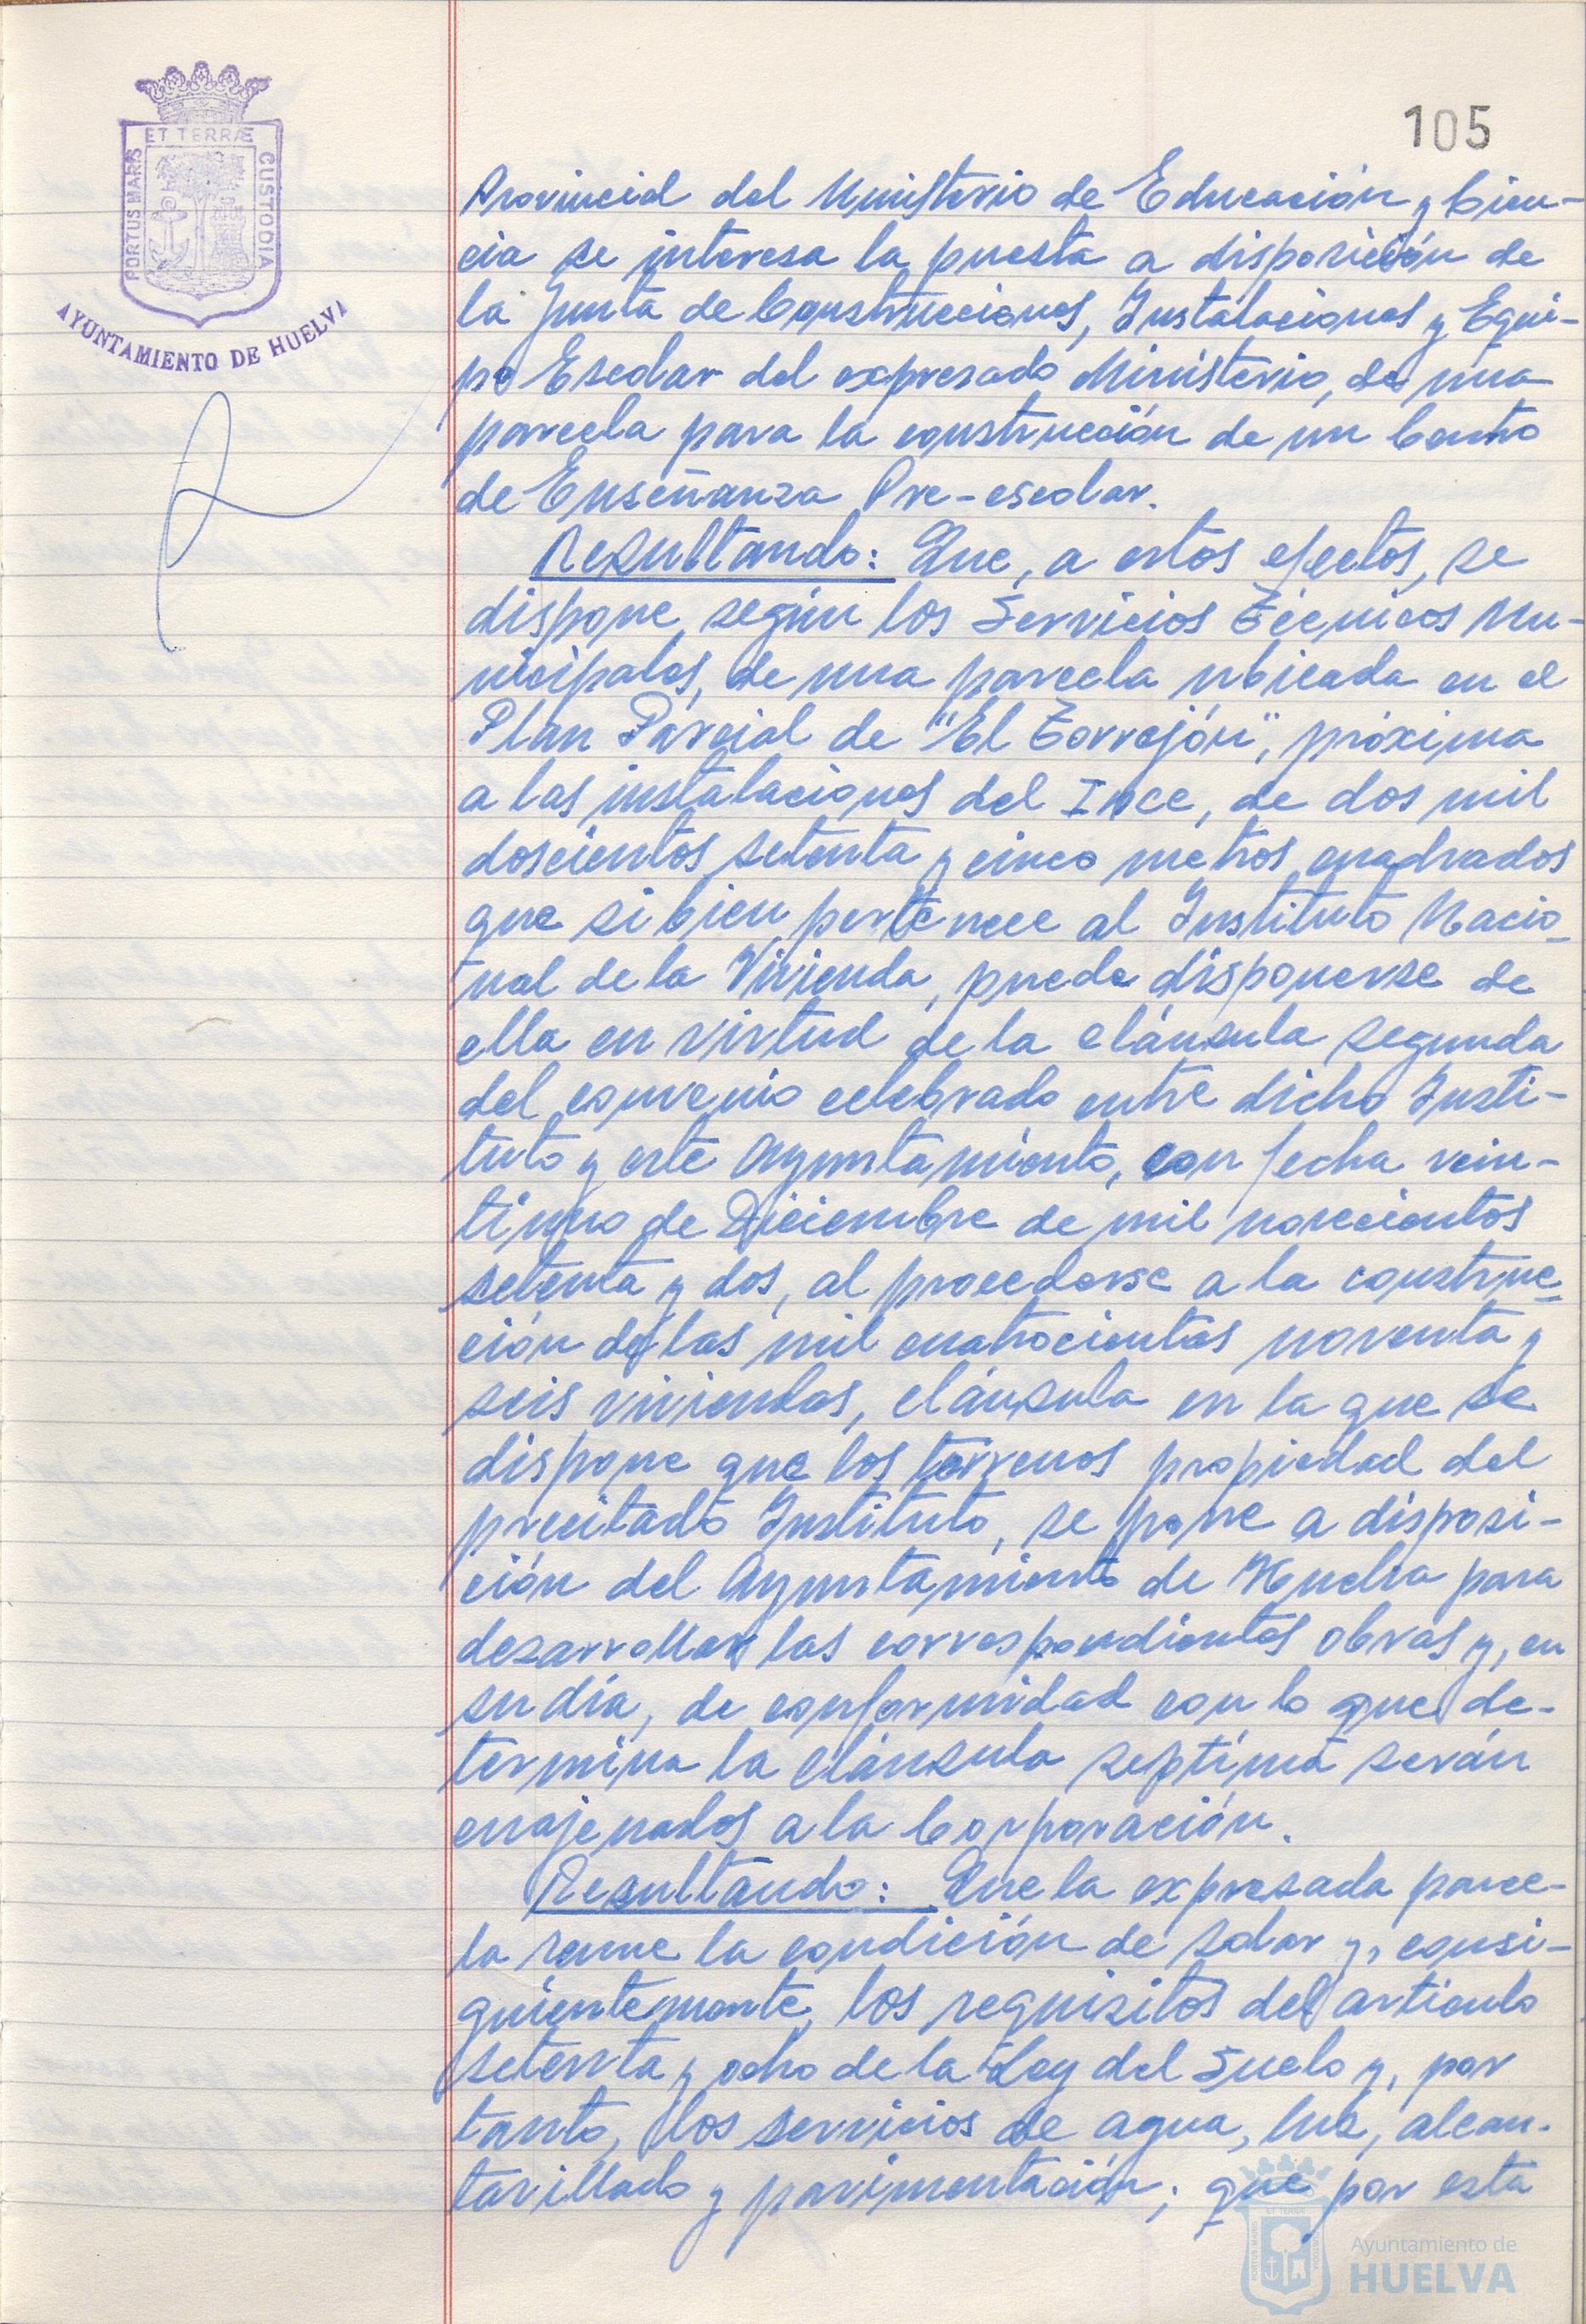 105
ET TERRÆ
PORTUS MARIS
CUSTODIA
AYUNTAMIENTO DE HUELVA
Provincial del Ministerio de Educación y Cien-
cia se interesa la puesta a disposición de
la Junta de Construcciones, Instalaciones y Equi-
po Escolar del expresado Ministerio, de una
parcela para la construcción de un Centro
de Enseñanza Pre-escolar.
Resultando: Que, a estos efectos, se
dispone, según los Servicios Técnicos Mu-
nicipales, de una parcela ubicada en el
Plan Parcial de "El Torrejón", próxima
a las instalaciones del Ince, de dos mil
doscientos setenta y cinco metros cuadrados
que si bien pertenece al Instituto Nacio-
nal de la Vivienda, puede disponerse de
ella en virtud de la cláusula segunda
del convenio celebrado entre dicho Insti-
tuto y este Ayuntamiento, con fecha vein-
tiuno de Diciembre de mil novecientos
setenta y dos, al procederse a la construc-
ción de las mil cuatrocientas noventa y
seis viviendas, cláusula en la que se
dispone que los terrenos propiedad del
precitado Instituto, se pone a disposi-
ción del Ayuntamiento de Huelva para
desarrollar las correspondientes obras y, en
su día, de conformidad con lo que de-
termina la cláusula septíma serán
enajenados a la Corporación.
Resultando: Que la expresada parce-
la reune la condición de solar y, consi-
guientemente, los requisitos del articulo
setenta y ocho de la Ley del Suelo y, por
tanto, los servicios de agua, luz, alcan-
tarillado y pavimentación; que por esta
Ayuntamiento de
HUELVA